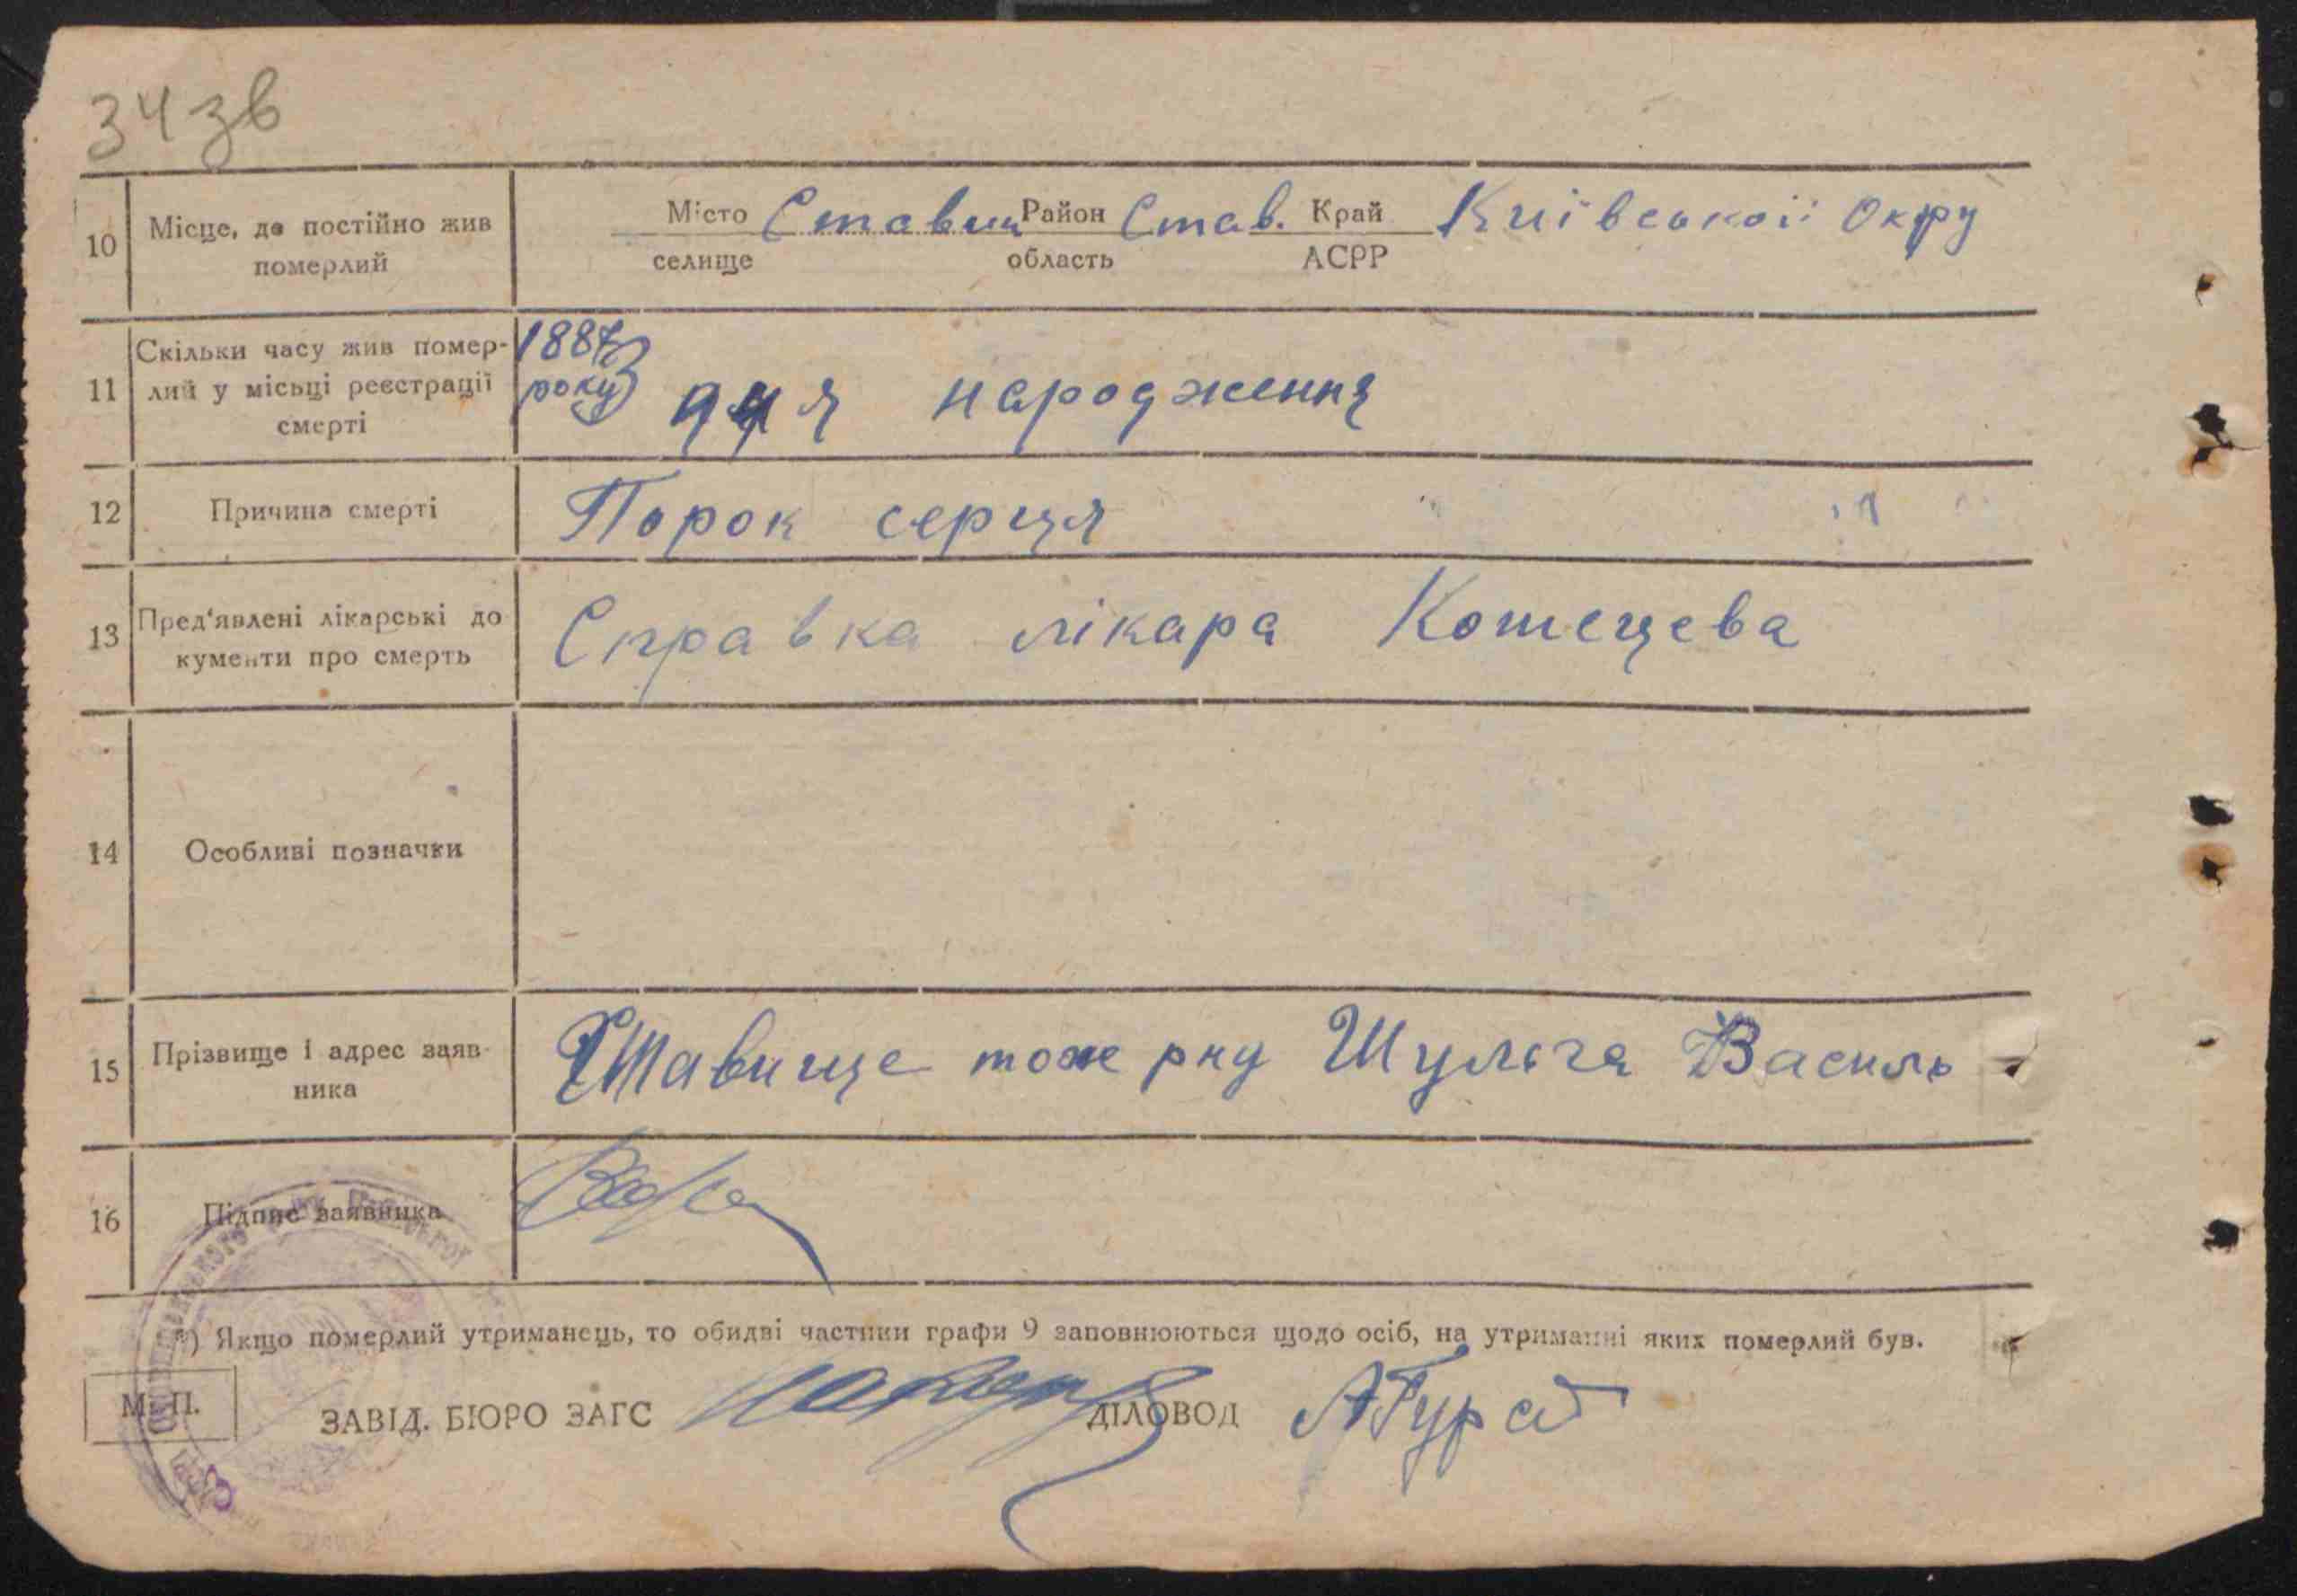 34 зв
10 Місце, де постійно жив померлий
Місто Ставищ Район Став. Край Київської Окру
селище область АСРР
11 Скільки часу жив помер-
лий у місьці реєстрації
смерті
1887
року З дня народження
12 Причина смерті Порок серця
13 Пред'явлені лікарські до
кументи про смерть
Справка лікара Кошецева
14 Особливі позначки
15 Прізвище і адрес заяв-
ника
Ставище тож рну Шуляга Василь
16 Підпис заявника
*) Якщо померлий утриманець, то обидві частини графи 9 заповнюються щодо осіб, на утриманні яких померлий був.
М. П.
ЗАВІД. БЮРО ЗАГС ДІЛОВОД